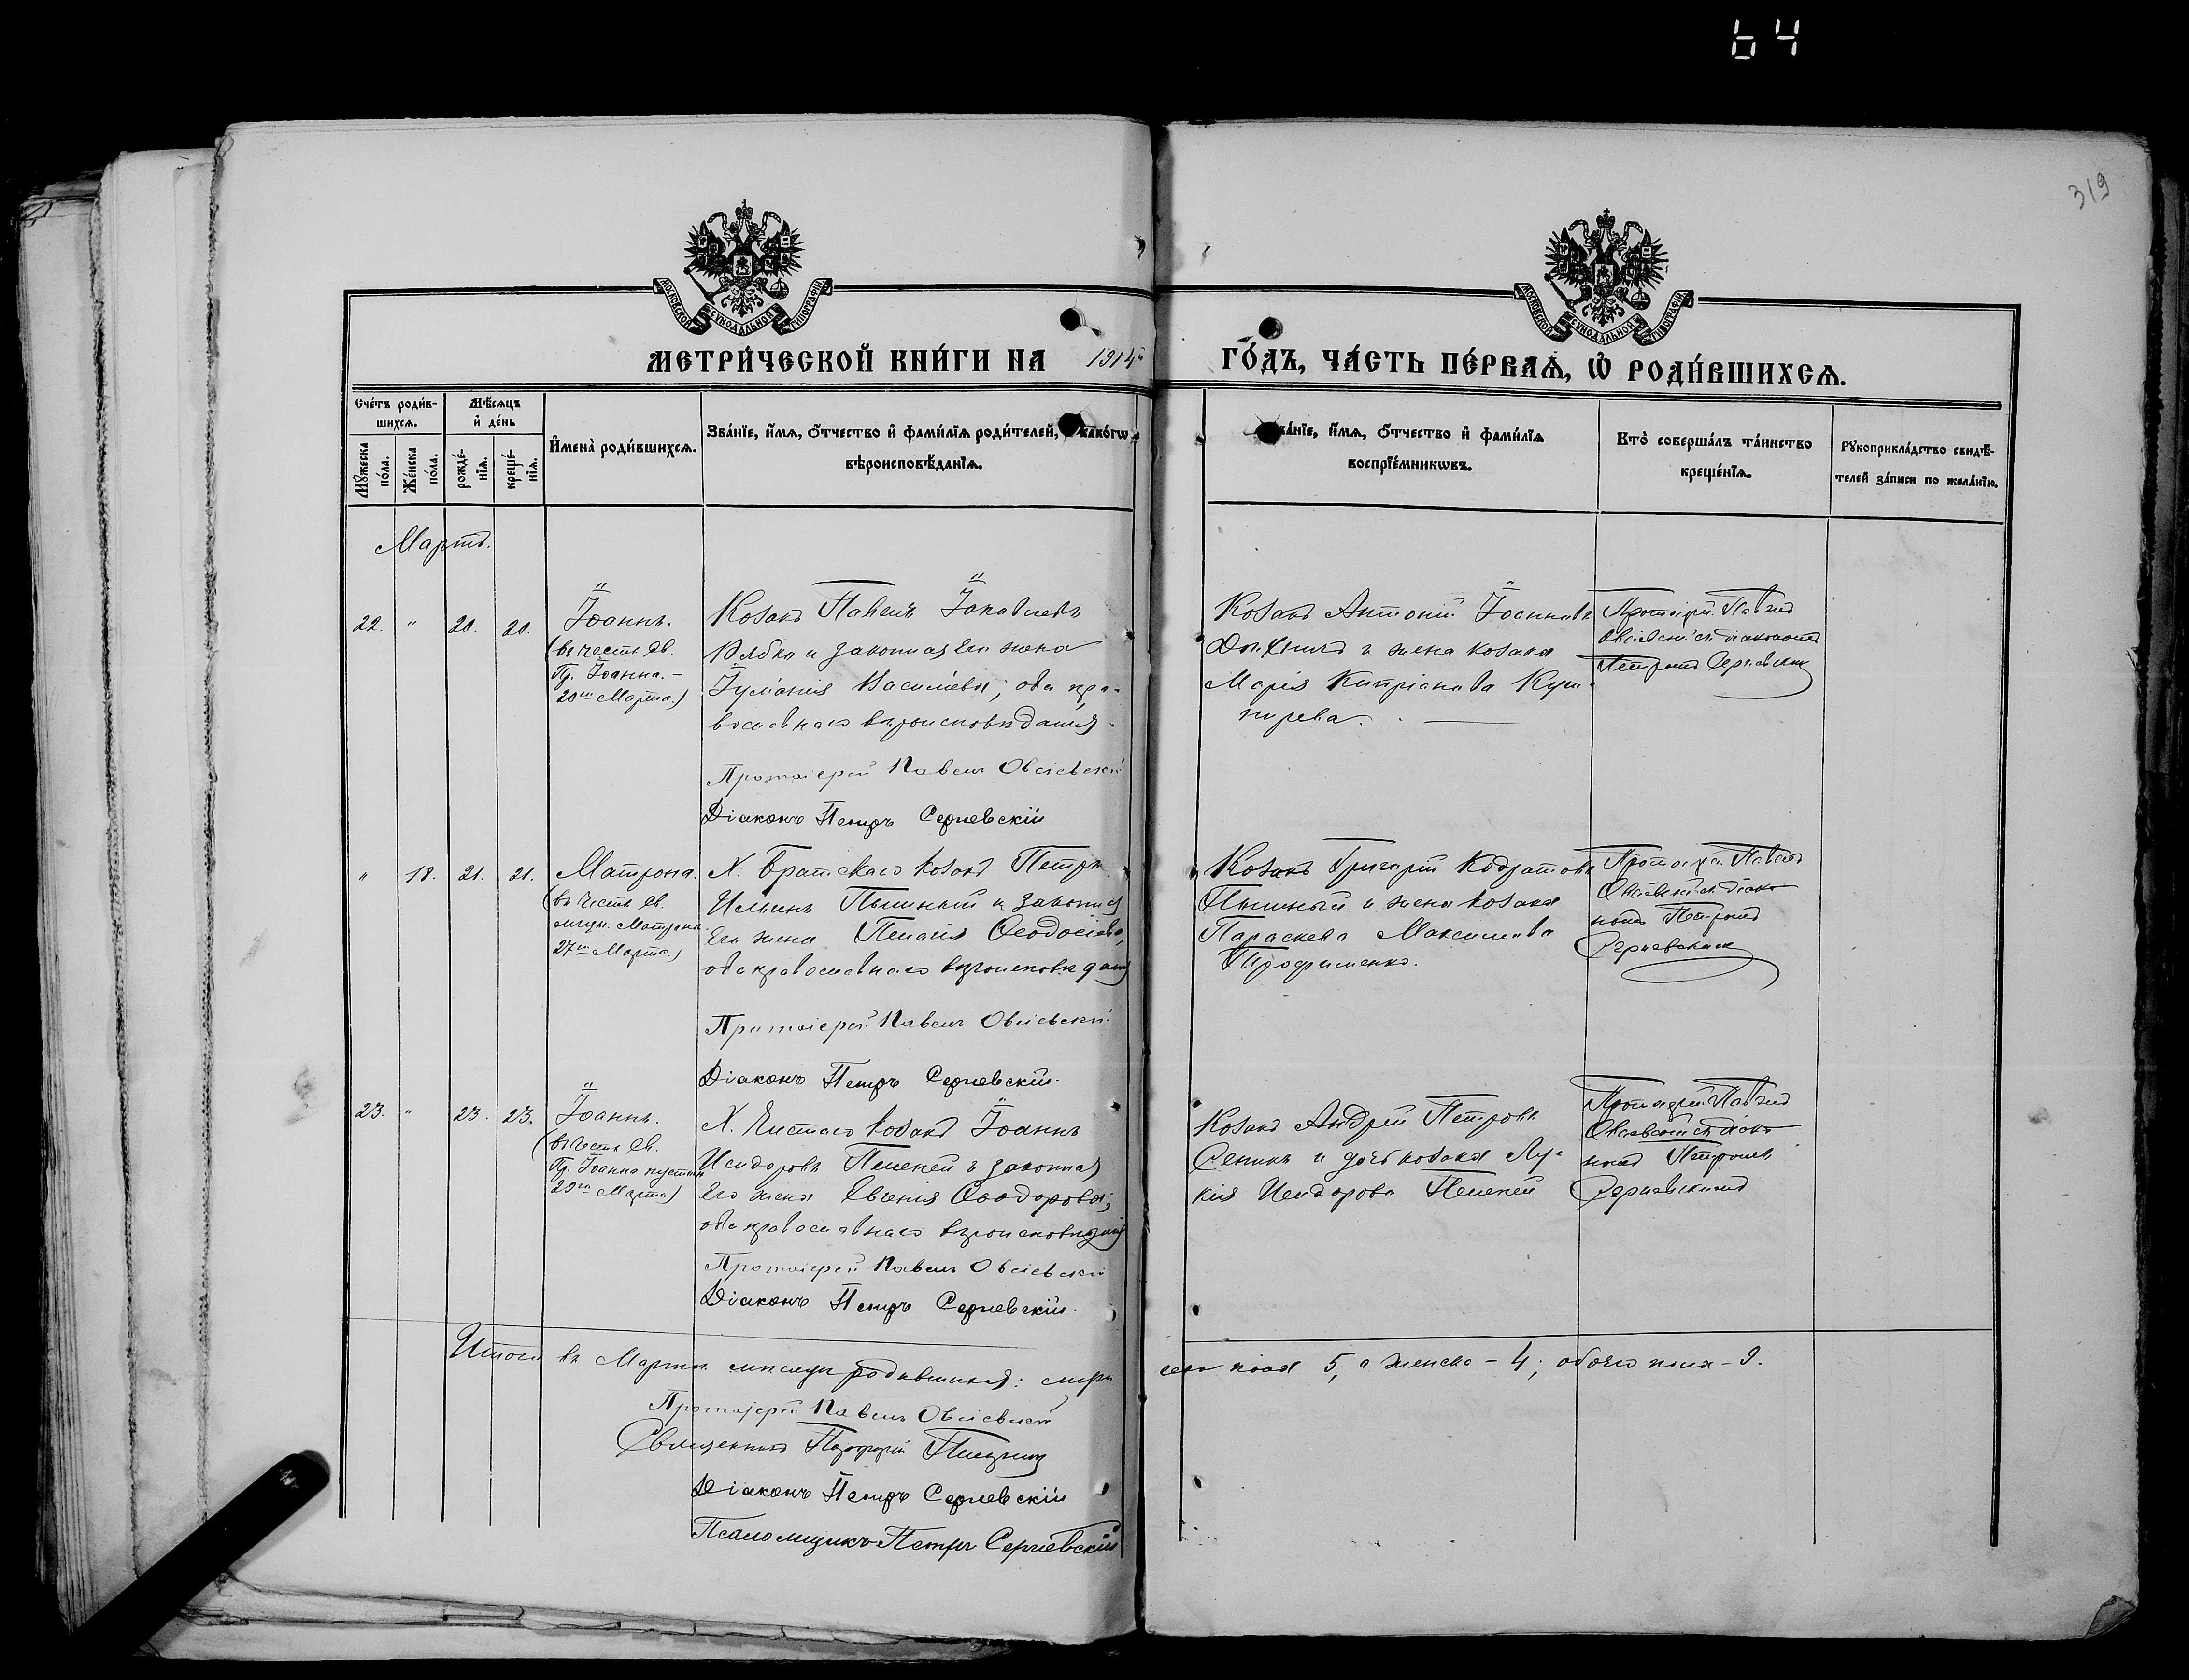 64
319
МОСКОВСКОЙ СѴНОДАЛЬНОЙ ТИПОГРАФІИ
МОСКОВСКОЙ СѴНОДАЛЬНОЙ ТИПОГРАФІИ
МЕТРИ́ЧЕСКОЙ КНИ́ГИ НА 1914й ГО́ДЪ, ЧА́СТЬ ПЕ́РВАѦ, Ѡ҆ РОДИ́ВШИХСѦ.
Сче́тъ роди́в-
шихсѧ.
Мꙋ́жеска по́ла.
Же́нска по́ла.
Мѣ́сѧцъ
и҆ де́нь
рожде́-
нїѧ.
креще́-
нїѧ.
И҆мена̀ роди́вшихсѧ.
Зва́нїе, и҆́мѧ, ѻ҆́тчество и҆ фами́лїѧ роди́телей, како́гѡ
вѣроисповѣ́данїѧ.
ва́нїе, и҆́мѧ, ѻ҆́тчество и҆ фами́лїѧ
воспрїе́мникѡвъ.
Кто̀ соверша́лъ та́инство
креще́нїѧ.
Рꙋкоприкла́дство свидѣ́-
телей за́писи по жела́нїю.
Мартъ.
22. " 20. 20.
Іоаннъ.
(въ честь св.
Пр. Іоанна. –
20го Марта.)
Козакъ Павелъ Іаковлевъ
Рябко и законная его жена
Іуліанія Васильева; оба пра-
вославнаго вѣроисповѣданія.
Протоіерей Павелъ Овсіевскій
Діаконъ Петръ Сергіевскій
Козакъ Антоній Іоанновъ
и жена козака
Марія Кипріанова Куш-
нирева.
Протоіерей Павелъ
Овсіевскій съ діакономъ
Петромъ Сергіевскимъ
" 18. 21. 21.
Матрона.
(въ честь св.
муч. Матроны
27го Марта.)
Х. Братскаго козакъ Петръ
Ильинъ Пышный и законная
его жена Пелагія Ѳеодосіева,
оба православнаго вѣроисповѣданія
Протоіерей Павелъ Овсіевскій
Діаконъ Петръ Сергіевскій.
Козакъ Григорій Кодратовъ
Пышный и жена козака
Параскева Максимова
Трофименко.
Протоіерей Павелъ
Овсіевскій съ діако-
номъ Петромъ
Сергіевскимъ
23. " 23. 23.
Іоаннъ.
(въ честь св.
Пр. Іоанна пустын.
29го Марта)
Х. козакъ Іоаннъ
Исидоровъ Пелепей и законная
его жена Евгенія Ѳеодорова;
оба православнаго вѣроисповѣданія
Протоіерей Павелъ Овсіевскій
Діаконъ Петръ Сергіевскій.
Козакъ Андрей Петровъ
Сеникъ и дочь козака Лу-
кія Исидорова Пелепей
Протоіерей Павелъ
Овсіевскій съ діако-
номъ Петромъ
Сергіевскимъ
Итого въ Мартѣ мѣсяцѣ родившихся: муже-
ска пола 5, а женска – 4; обоего пола – 9.
Протоіерей Павелъ Овсіевскій
Священникъ
Діаконъ Петръ Сергіевскій
Псаломщикъ Петръ Сергіевскій